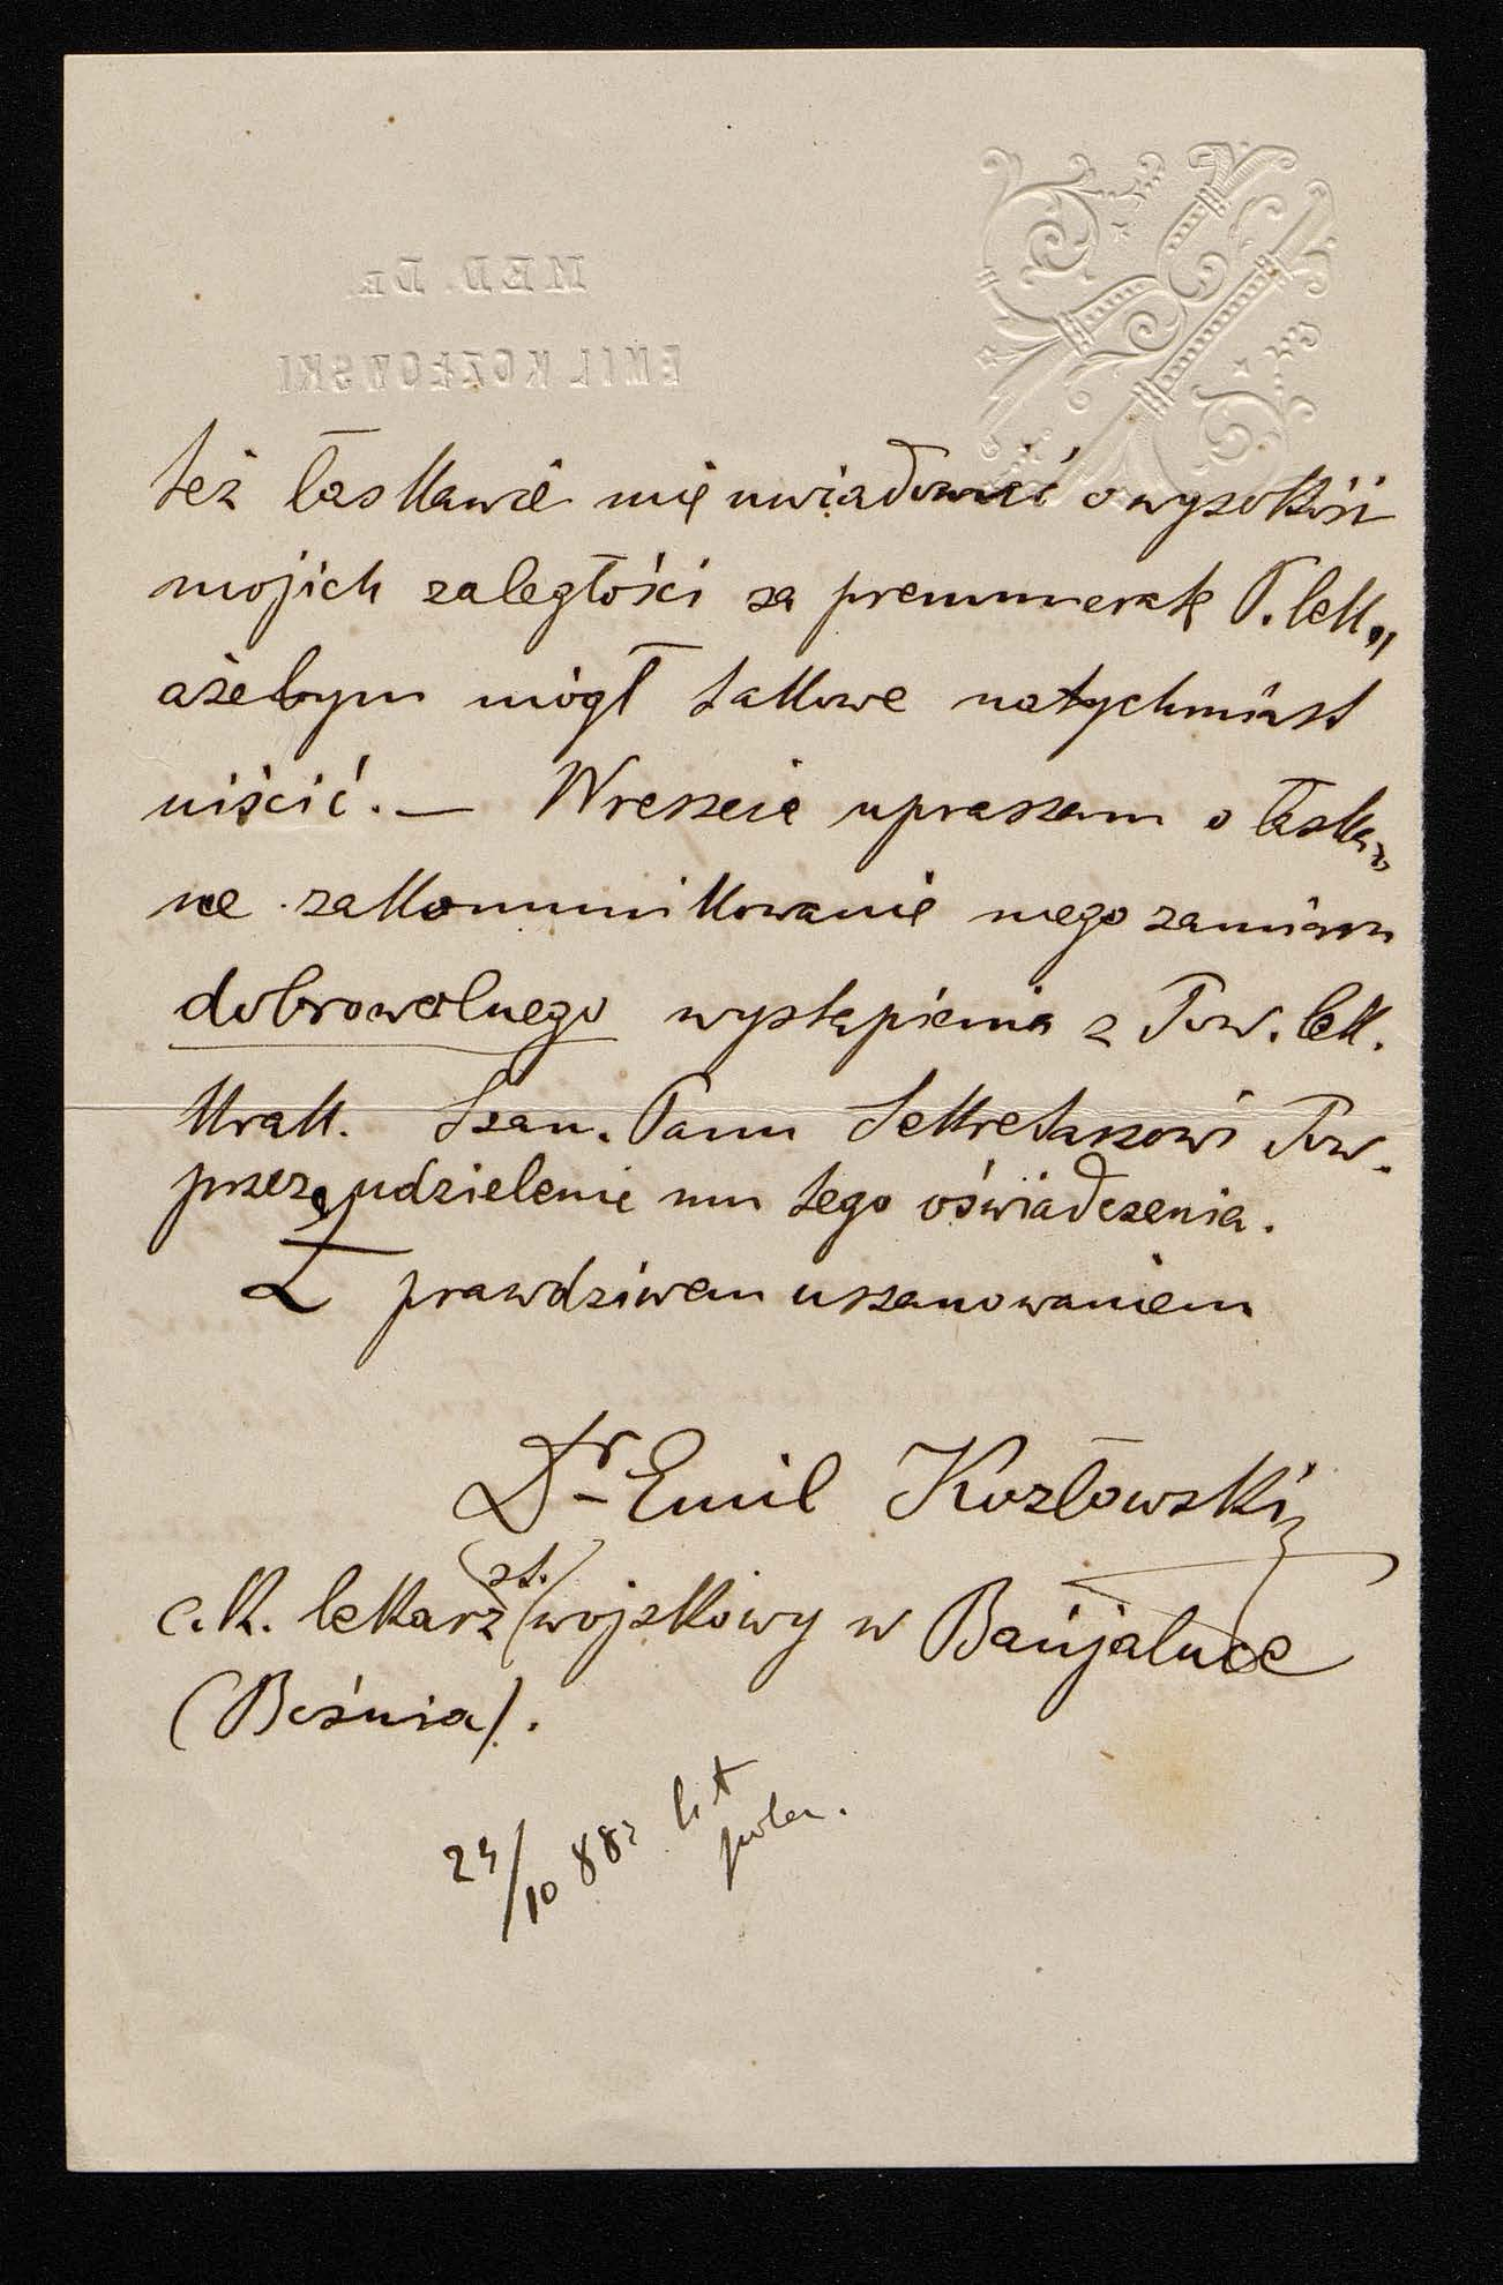 MED. DR.
EMIL KOZŁOWSKI
też łaskawie mię uwiadomić o wysokości
mojich zaległości za prenumeratę P. lek.,
ażebym mógł takowe natychmiast
uiścić. — Wreszcie upraszam o łaska-
we zakommunikowanie mego zamiaru
dobrowolnego wystąpienia z Tow. lek.
Krak. Szan. Panu Sekretarzowi Tow.
przez udzielenie mu tego oświadczenia.
Z prawdziwem uszanowaniem
Dr Emil Kozłowski
c.k. lekarz (st.) wojskowy w Banjaluce
(Bośnia).
24/10 882 list